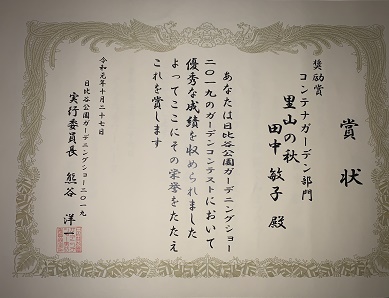 賞状
奨励賞
コンテナガーデン部門
里山の秋
田中敏子 殿
あなたは日比谷公園ガーデニングショー
二〇一九のガーデンコンテストにおいて
優秀な成績を収められました
よってここにその栄誉をたたえ
これを賞します
令和元年十月二十七日
日比谷公園ガーデニングショー二〇一九
実行委員長 熊谷 洋一